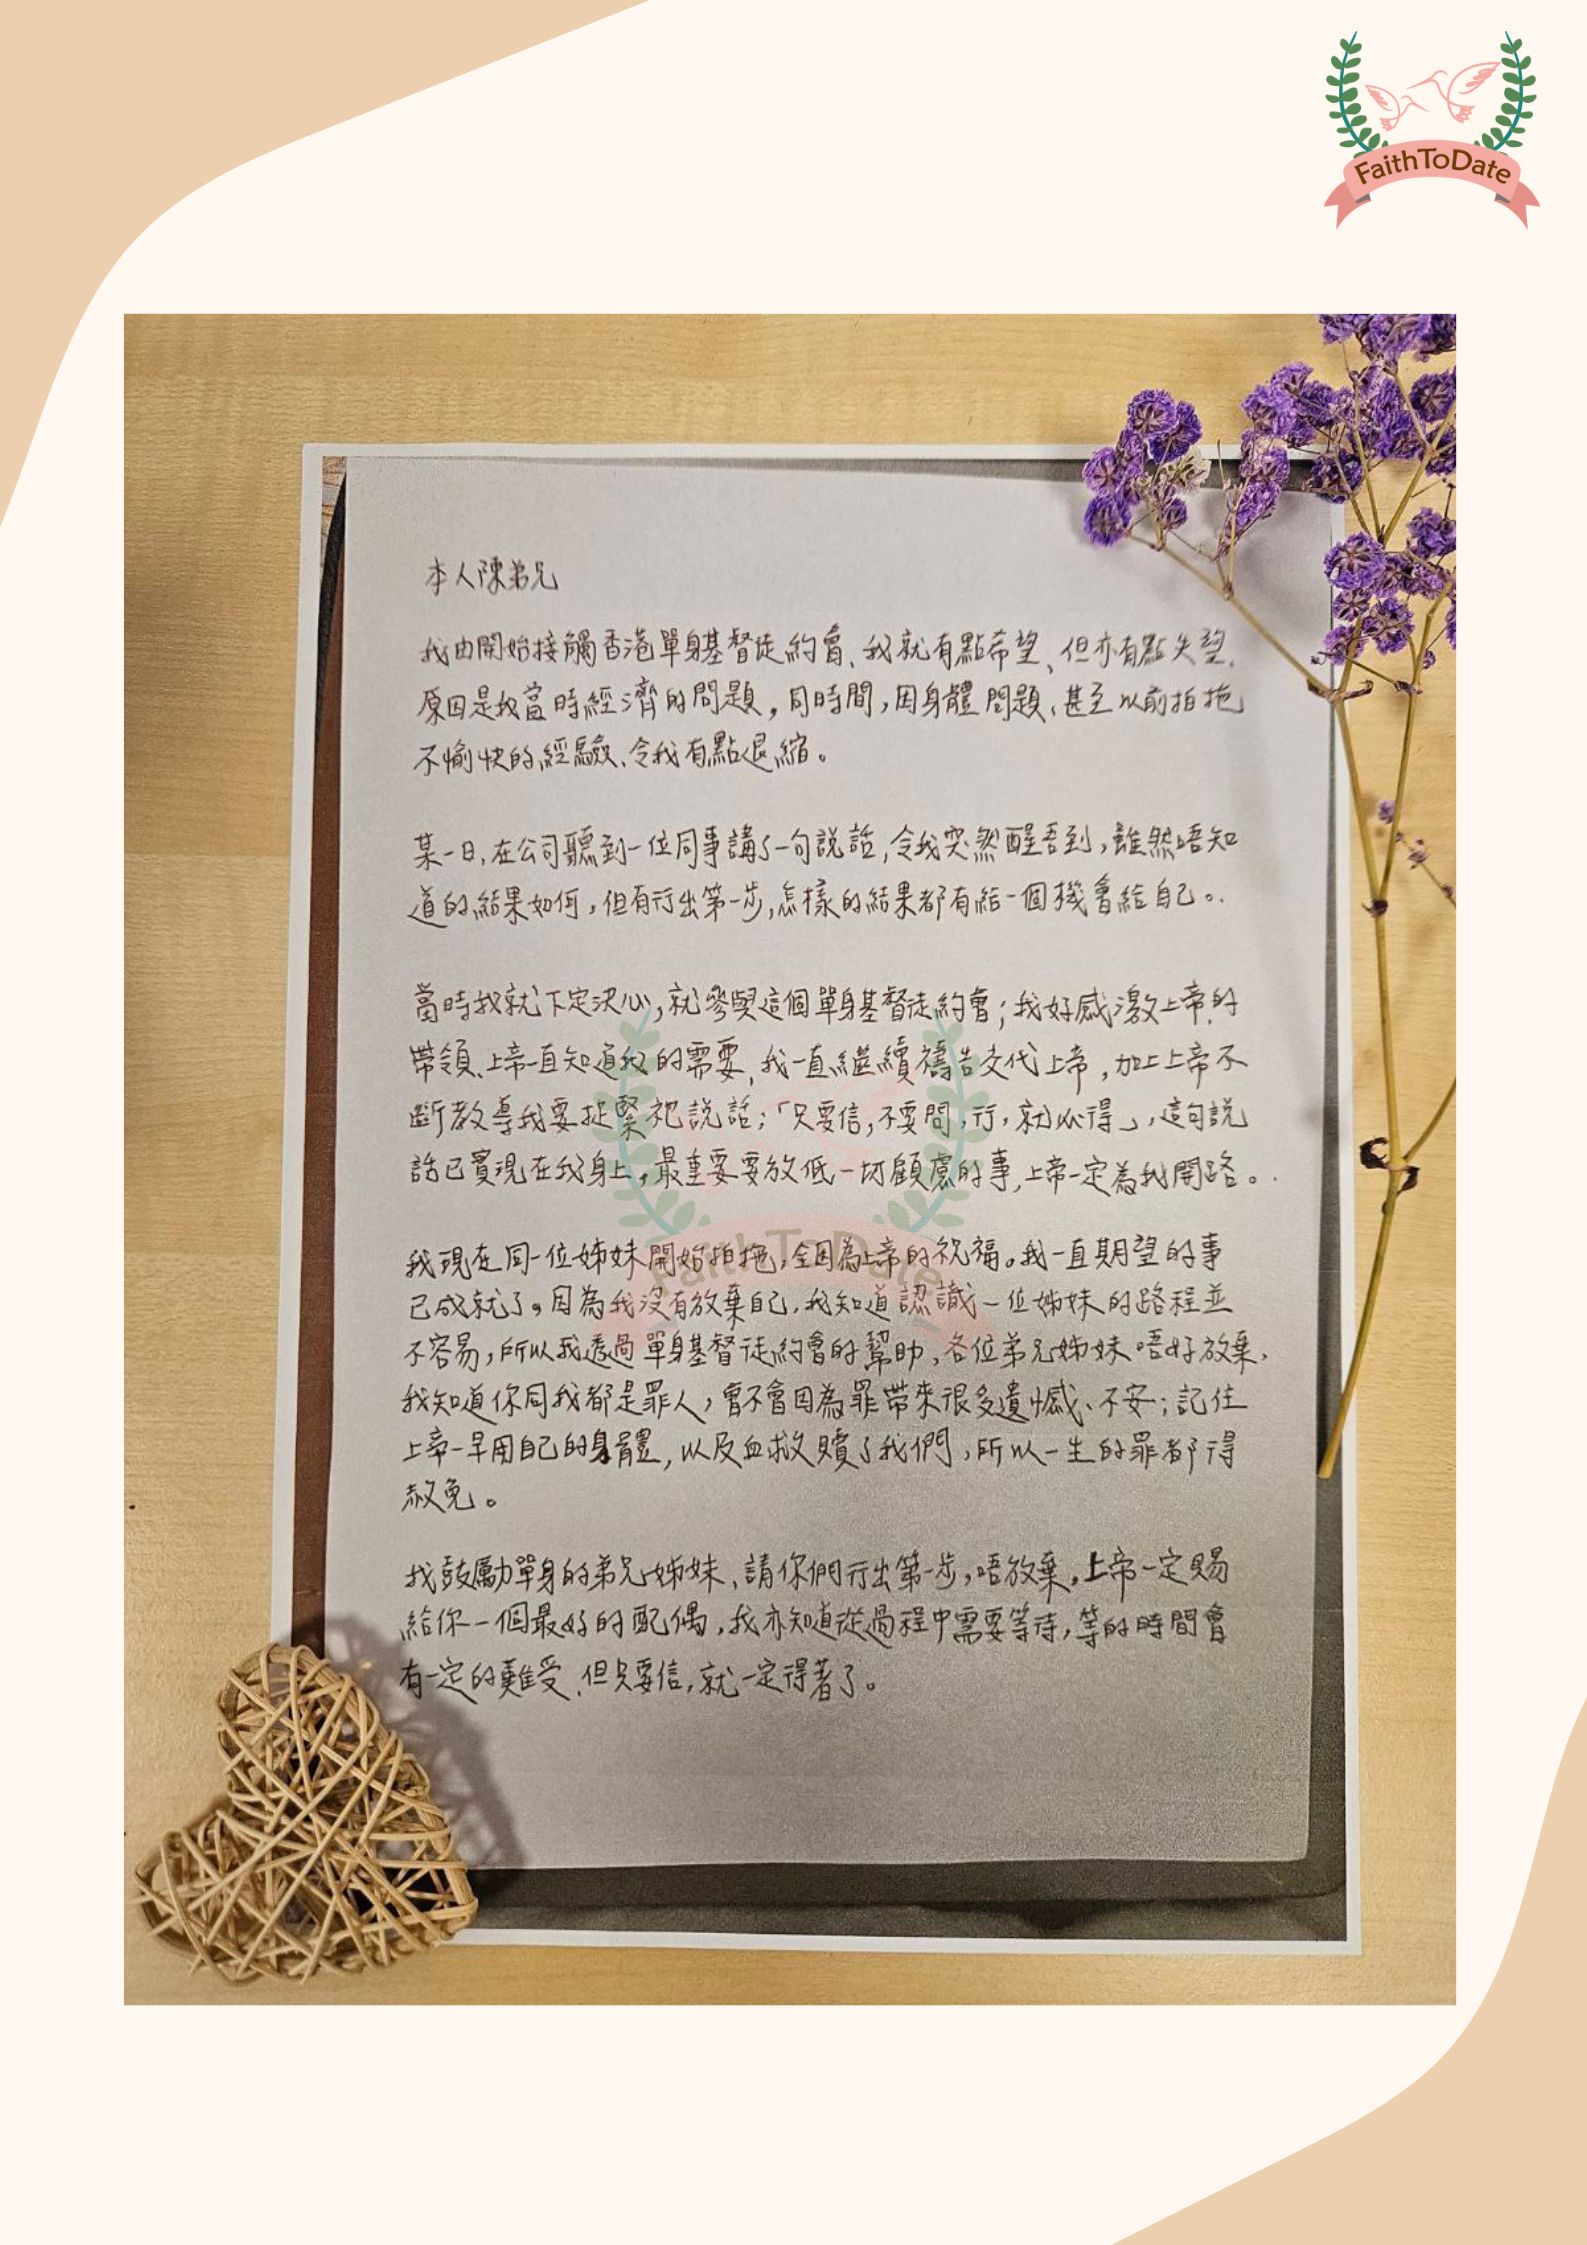 FaithToDate
本人陳弟兄
我由開始接觸香港單身基督徒約會、我就有點希望、但亦有點失望、
原因是我當時經濟的問題，同時間，因身體問題、甚至以前拍拖
不愉快的經驗、令我有點退縮。
某一日，在公司聽到一位同事講了一句說話，令我突然醒吾到，雖然唔知
道的結果如何，但有行出第一步，怎樣的結果都有給一個機會給自己。
當時我就下定決心，就參與這個單身基督徒約會；我好感激上帝的
帶領、上帝一直知道我的需要，我一直繼續禱告交代上帝，加上上帝不
斷教導我要捉緊祂說話；「只要信，不要問，行，就必得」，這句說
話已實現在我身上，最重要要放低一切顧慮的事，上帝一定為我開路。
我現在同一位姊妹開始拍拖，全因為上帝的祝福。我一直期望的事
已成就了。因為我沒有放棄自己，我知道認識一位姊妹的路程並
不容易，所以我透過單身基督徒約會的幫助，各位弟兄姊妹唔好放棄，
我知道你同我都是罪人，會不會因為罪帶來很多遺憾、不安；記住
上帝一早用自己的身體，以及血救贖了我們，所以一生的罪都得
赦免。
我鼓勵單身的弟兄姊妹、請你們行出第一步，唔放棄，上帝一定賜
給你一個最好的配偶，我亦知道從過程中需要等待，等的時間會
有一定的難受，但只要信，就一定得著了。
FaithToDate